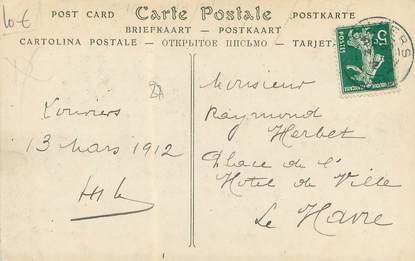 10 €
POST CARD Carte Postale POSTKARTE
BRIEFKAART - POSTKAART
CARTOLINA POSTALE - ОТКРЫТОЕ ПИСЬМО - TARJET
5c
POSTES
ERS
27
Louviers
13 Mars 1912
Monsieur
Raymond
Herbet
Place de l'
Hotel de Ville
Le Havre